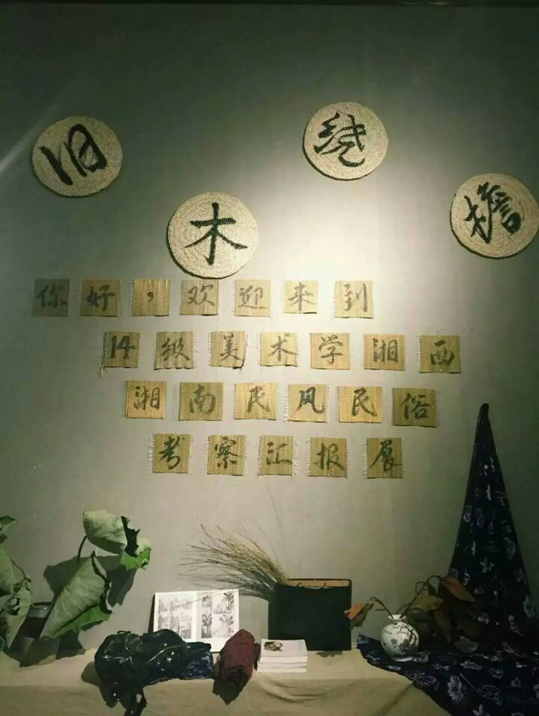 旧木绕檐
你好,欢迎来到
14级美术学湘西
湘南民风民俗
考察汇报展